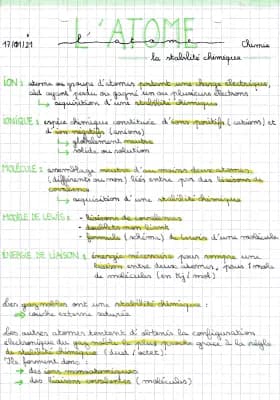 L'ATOME
17/01/21
l'atome
Chimie
la stabilité chimique
ION : atome ou groupe d'atomes portant une charge électrique,
càd ayant perdu ou gagné un ou plusieurs électrons
↳ acquisition d'une stabilité chimique
IONIQUE : espèce chimique constituée d'ions positifs (cations) et
d'ions négatifs (anions)
↳ globalement neutre
↳ solide ou solution
MOLÉCULE : assemblage neutre d'au moins deux atomes
(différents ou non) liés entre par des liaisons de
covalence
↳ acquisition d'une stabilité chimique
MODÈLE DE LEWIS : - liaisons de covalence
- doublets non liant
- formule (schéma) de Lewis d'une molécule
ÉNERGIE DE LIAISON : énergie nécessaire pour rompre une
liaison entre deux atomes, pour 1 mole
de molécules (en kJ/mol)
Les gaz nobles ont une stabilité chimique :
↳ couche externe saturée
Les autres atomes tentent d'obtenir la configuration
électronique du gaz noble le plus proche grâce à la règle
de stabilité chimique (duet/octet).
Ils forment donc :
→ des ions monoatomiques
→ des liaisons covalentes (molécules)